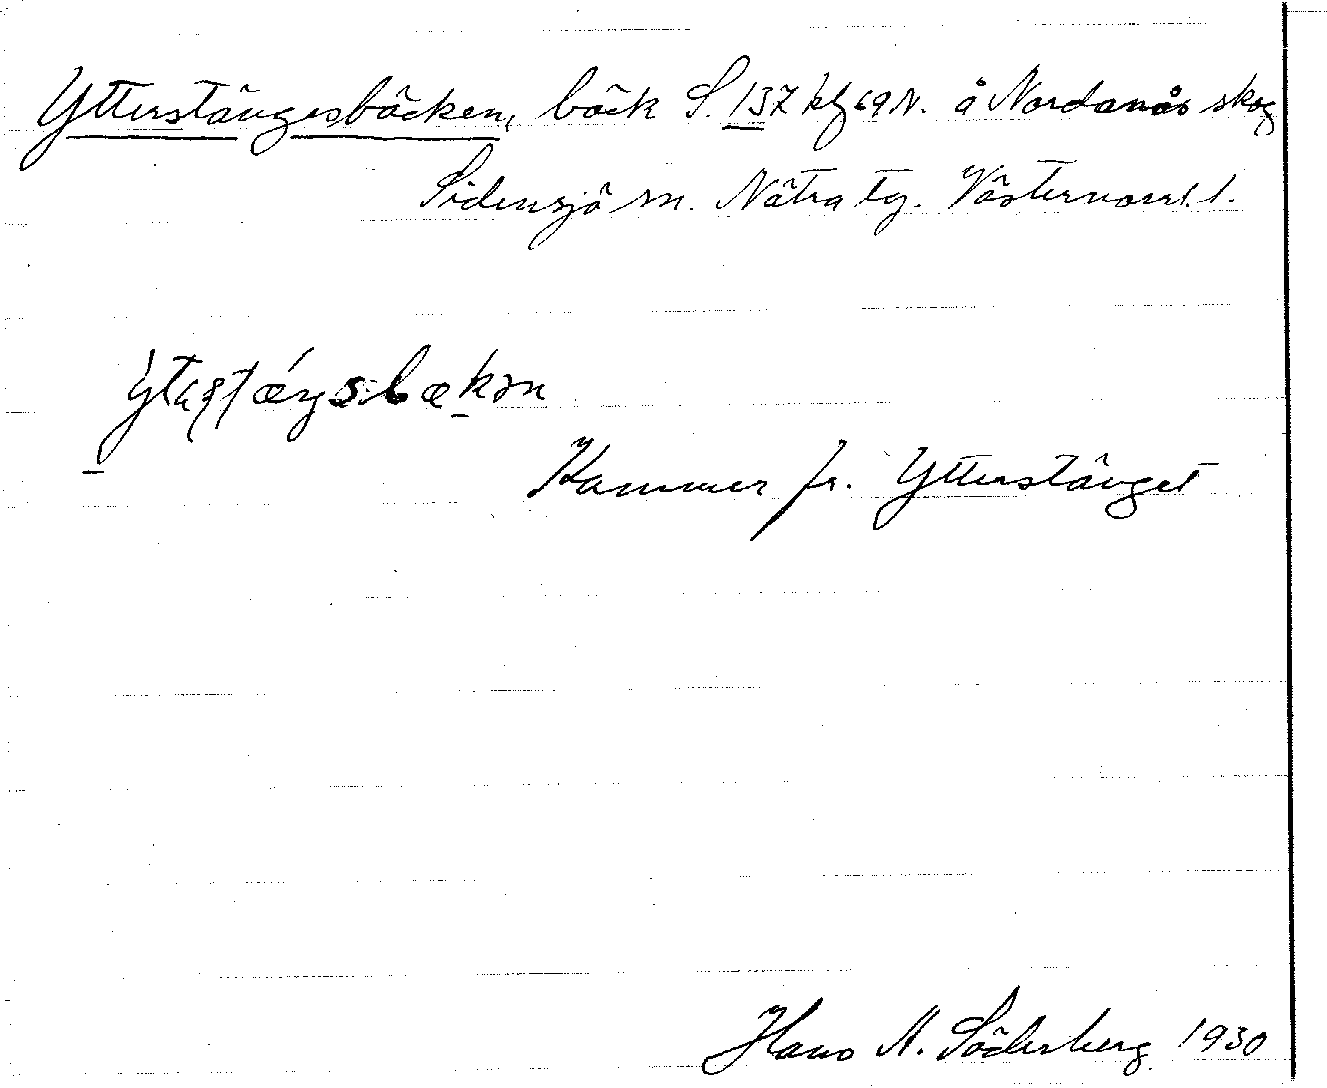 Ytterstängesbäcken, bäck S. 137 kf 69 N. å Nordanås skog
Sidensjö sn. Nätra tg. Västernorrl. l.
Kommer fr. Ytterstänget
Hans N. Söderberg 1930